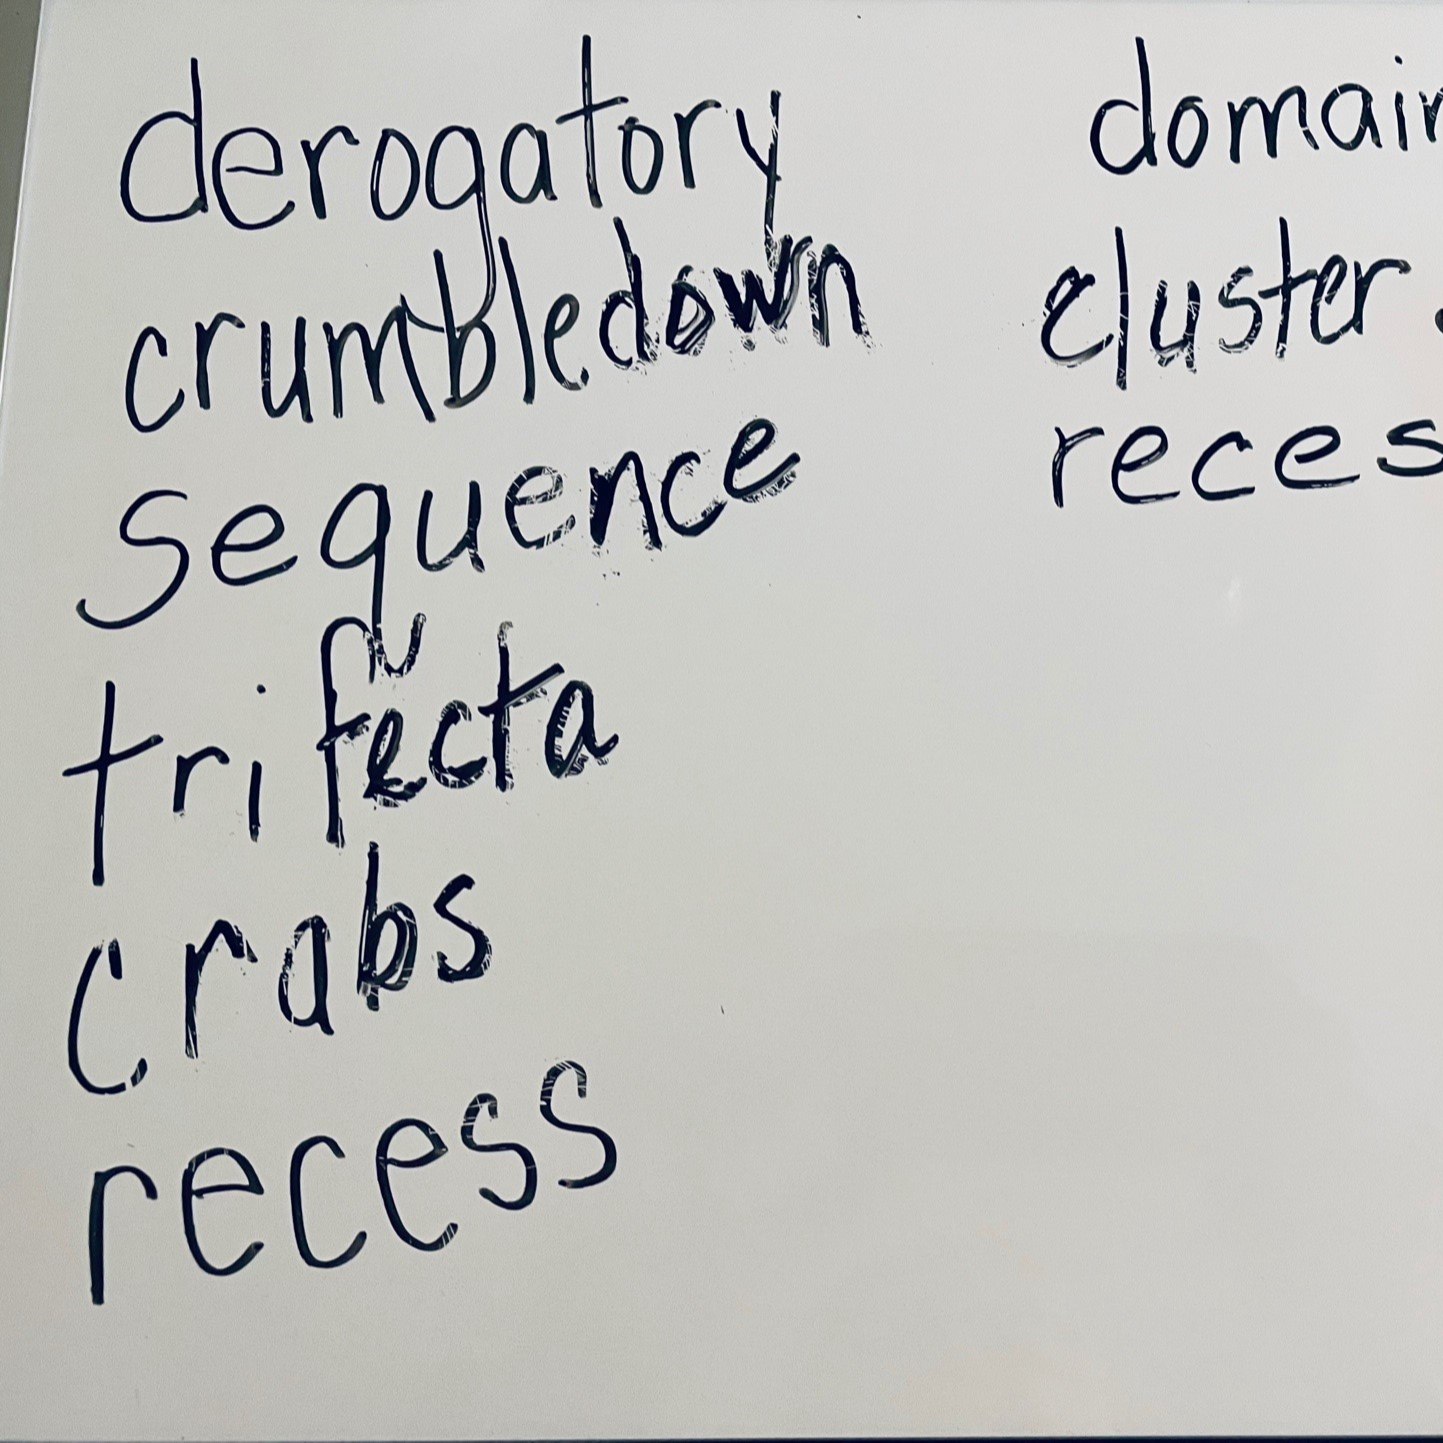 derogatory
crumbledown
sequence
trifecta
crabs
recess
domain
cluster
reces